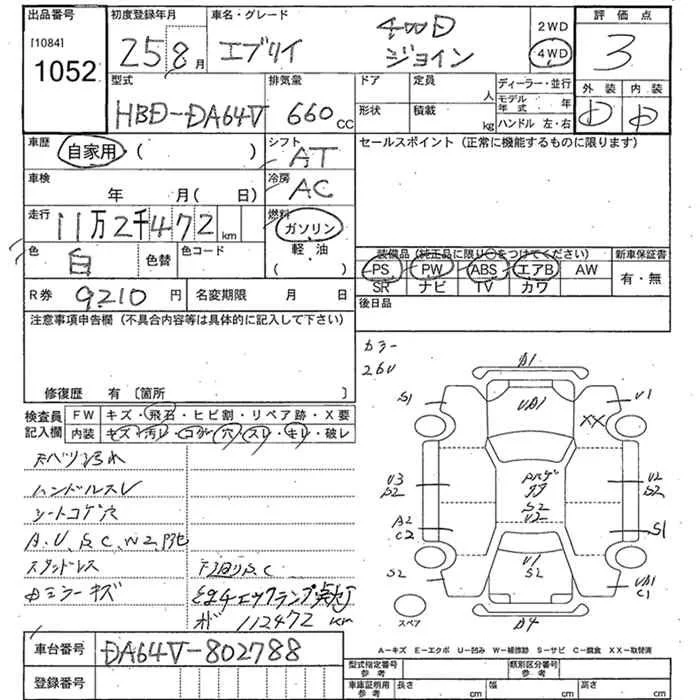 出品番号 初度登録年月 車名・グレード 評価点
[1084] 1052
25年8月 エブリイ 4WD ジョイン
2WD
4WD
3
型式 HBD-DA64V
排気量 660cc
ドア 定員 人
形状 積載 kg
ディーラー・並行
モデル年式 年
ハンドル 左・右
外装 D 内装 D
車歴 自家用 ( )
シフト AT
セールスポイント (正常に機能するものに限ります)
車検 年 月( 日)
冷房 AC
走行 11万2千472km
燃料 ガソリン 軽・油 ( )
色 白 色替 色コード
装備品 (純正品に限り○をつけてください) 新車保証書
PS PW ABS エアB AW 有・無
SR ナビ TV カワ
R券 9210円 名変期限 月 日
後日品
注意事項申告欄 (不具合内容等は具体的に記入して下さい)
修復歴 有 〔箇所 〕
カラー
26U
検査員記入欄 FW キズ・飛石・ヒビ割・リペア跡・X要
内装 キズ・汚レ・コゲ・穴・スレ・キレ・破レ
ハンドルスレ
シートコゲ穴
A.U.S.C.W2
下回りS.C
エンジンチェックランプ点灯
112472km
A1
UA1
S1
U1
XX
U3
S2
U2
S2
S2
U2
A2
C2
S1
S2
U1
S2
UA1
C1
スペア
A4
A-キズ E-エクボ U-凹み W-補修跡 S-サビ C-腐食 XX-取替済
車台番号 DA64V-802788
登録番号
型式指定番号 参考 類別区分番号 参考
車庫証明用 参考 長さ cm 幅 cm 高さ cm